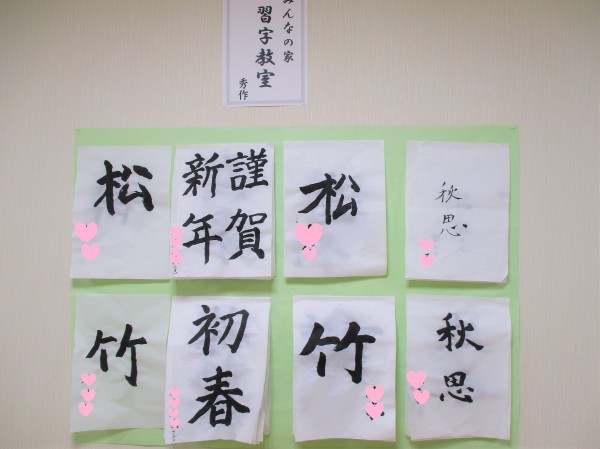 みんなの家
習字教室
秀作
松
謹賀
新年
松
秋思
竹
初春
竹
秋思